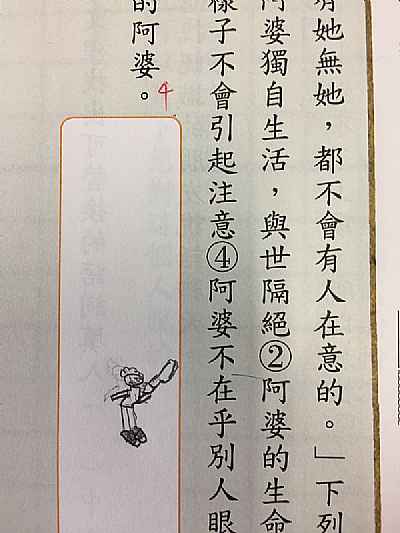 有她無她，都不會有人在意的。」下列
阿婆獨自生活，與世隔絕②阿婆的生命
樣子不會引起注意④阿婆不在乎別人眼
的阿婆。
4